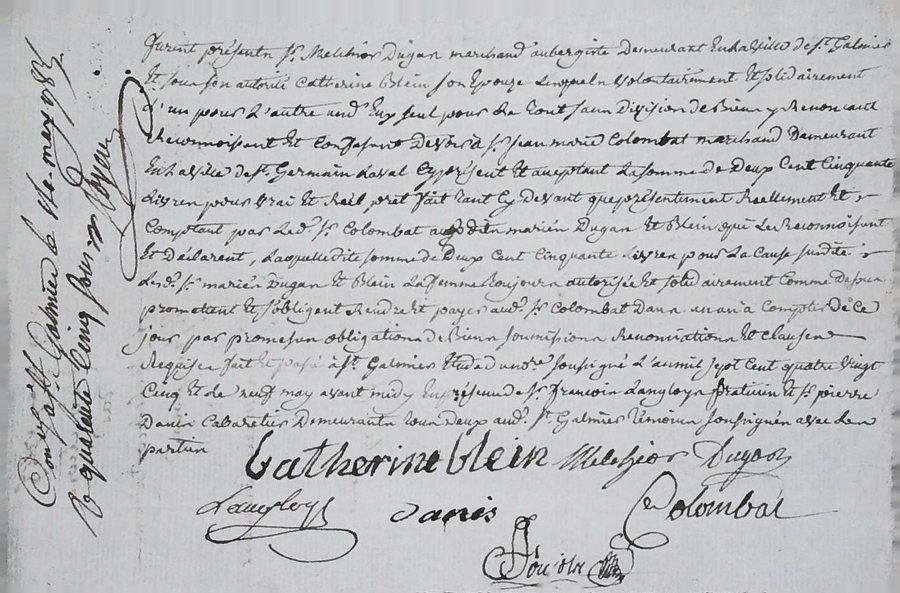 furent présents Sr. Melchior Dugas marchand aubergiste Demeurant En la ville de St. Galmier
Et sous son autorité Catherine Blein son Epouze Lesquels volontairement Et solidairement
L'un pour L'autre un d'Eux seul pour Le tout sans Division de Biens y Renoncant
Reconnoissent Et Confessent Devoir à Sr. Jean marie Colombat marchand Demeurant
En La ville de St. Germain Laval Cy présent Et acceptant La somme de Deux Cent Cinquante
Livres pour vrai Et Réél prêt fait tant Cy Devant que présentement Réellement Et
Comptant par Led. Sr. Colombat auxdits mariés Dugas Et Blein qui Le Reconnoissent
Et Déclarent, Laquelle dite somme de Deux Cent Cinquante Livres pour La Cause susdite
Lesd. Sr. mariés Dugas Et Blein La femme toujours autorisée Et solidairement Comme Dessus
promettent Et s'obligent Rendre Et payer aud. Sr. Colombat Dans un an à Compter de Ce
jour par promesses obligations de Biens soumissions Renonciations Et clauses
Requises fait Et passé à St. Galmier Etude du nore. soussigné L'an mil sept Cent quatre vingt
Cinq Et Le neuf may avant midy En présence de Sr. francois Langloys praticien Et Sr. pierre
Danis Cabaretier Demeurants tous deux aud. St. Galmier témoins soussignés avec Les
parties
Catherine blein Melchior Dugas
Langloys danis Colombat
Conllé à St. Galmier le 14 may 1785
R quarante Cinq sous six